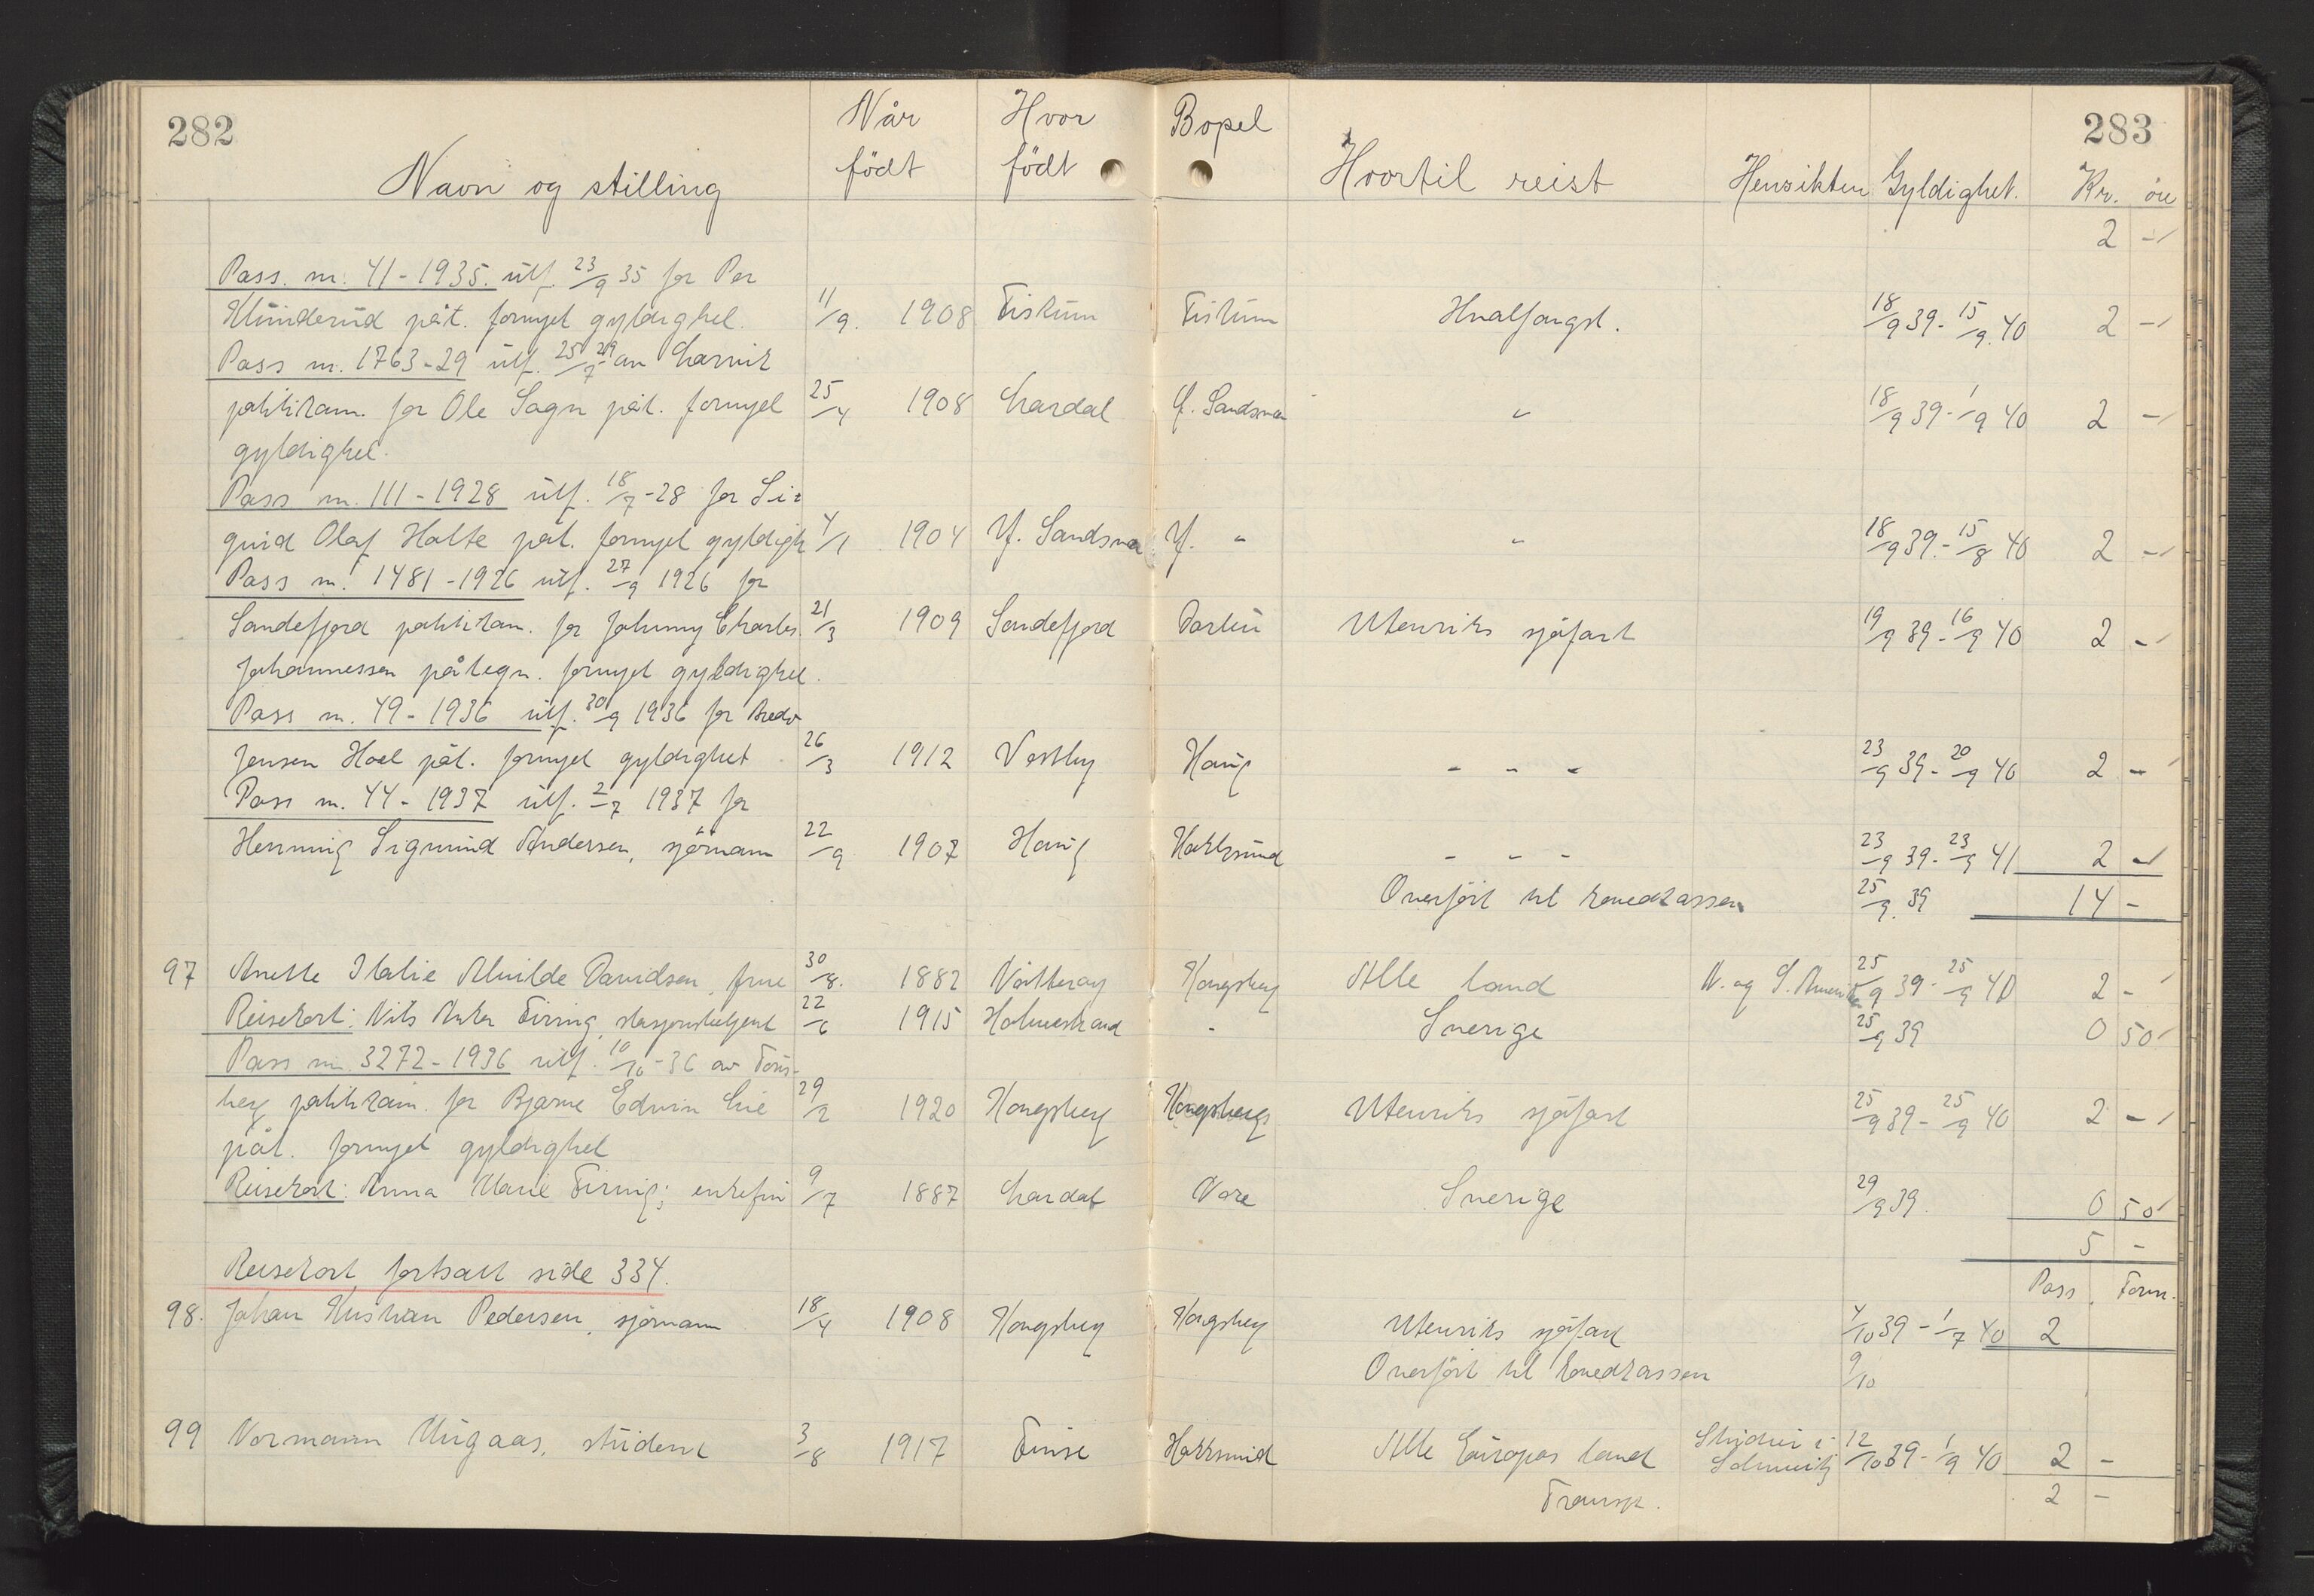 282
283
Navn og stilling Når født Hvor født Bopel Hvortil reist Hensikten Gyldighet. Kr. öre
2 -
Pass. nr. 41-1935. utf. 23/9 35 for Per
Klunderud påt. fornyet gyldighet. 11/9. 1908 Fiskum Fiskum Hvalfangst. 18/9 39 - 15/9. 40 2 -
Pass nr. 1763-29 utf. 25/7 29 av Larvik
politikam. for Ole Sagn påt. fornyet 25/4 1908 Lardal Y. Sandsvær " 18/9 39 - 1/9 40 2 -
gyldighet.
Pass nr. 111-1928 utf. 18/7-28 for Si=
gurd Olaf Holte påt. fornyet gyldigh 4/1 1904 Y. Sandsvær Y. " " 18/9 39. - 15/8 40 2 -
Pass nr. 1481-1926 utf. 27/9 1926 for
Sandefjord politikam. for Johnny Charles 21/3 1909 Sandefjord Darbu Utenriks sjøfart 19/9 39 - 16/9 40 2 -
Johannessen påtegn. fornyet gyldighet.
Pass nr. 49-1936 utf. 30/9 1936 for
Jensen Hoel påt. fornyet gyldighet 26/3 1912 Vestby Haug - - - 23/9 39 - 20/9 40 2 -
Pass nr. 44-1937 utf. 2/7 1937 for
Henning Sigmund Andersen, sjømann 22/9 1907 Haug Hokksund - - - 23/9 39 - 23/9 41 2 -
Overført til hovedkassen 25/9. 39 14 -
97 Anette Italie Alvilde Davidsen, frue 30/8. 1882 Nötteröy Kongsberg Alle land N. og S. Amerika 25/9 39 - 25/9 40 2 -
Reisekort: Nils Anker Firing, stasjonsbetjent 22/6 1915 Holmestrand - Sverige 25/9 39 0 50
Pass nr. 3272-1936 utf. 10/10-36 av Töns-
berg politikam. for Bjarne Edvin Lie 29/2 1920 Kongsberg Kongsberg Utenriks sjøfart 25/9 39 - 25/9 40 2 -
påt. fornyet gyldighet
Reisekort: Anna Marie Firing; enkefru 9/7 1887 Lardal Nore Sverige 29/9 39 0 50
5 -
Reisekort fortsatt side 334.
Pass. Forn.
98. Johan Kristian Pedersen, sjømann 18/4 1908 Kongsberg Kongsberg Utenriks sjøfart 4/10 39 - 1/7 40 2
Overført til hovedkassen 9/10
99 Normann Urgaas, student 3/8 1917 Finse Hokksund Alle Europas land Studier i Schweitz 12/10 39 - 1/9 40 2 -
Transp. 2 -